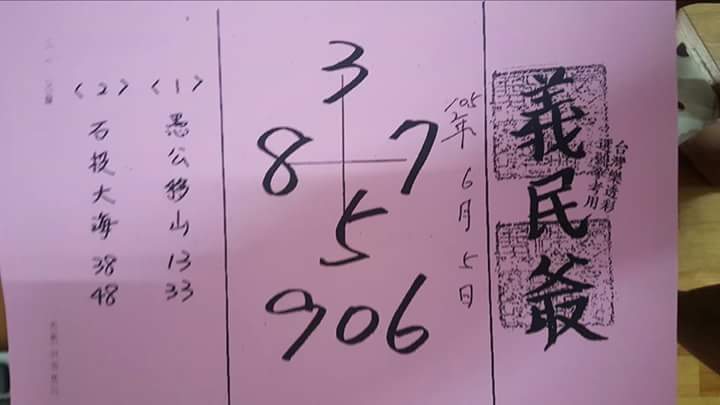 義民爺
台灣樂透彩
105年6月5日
3
8 7
5
906
(1) 愚公移山 13 33
(2) 石投大海 38 48